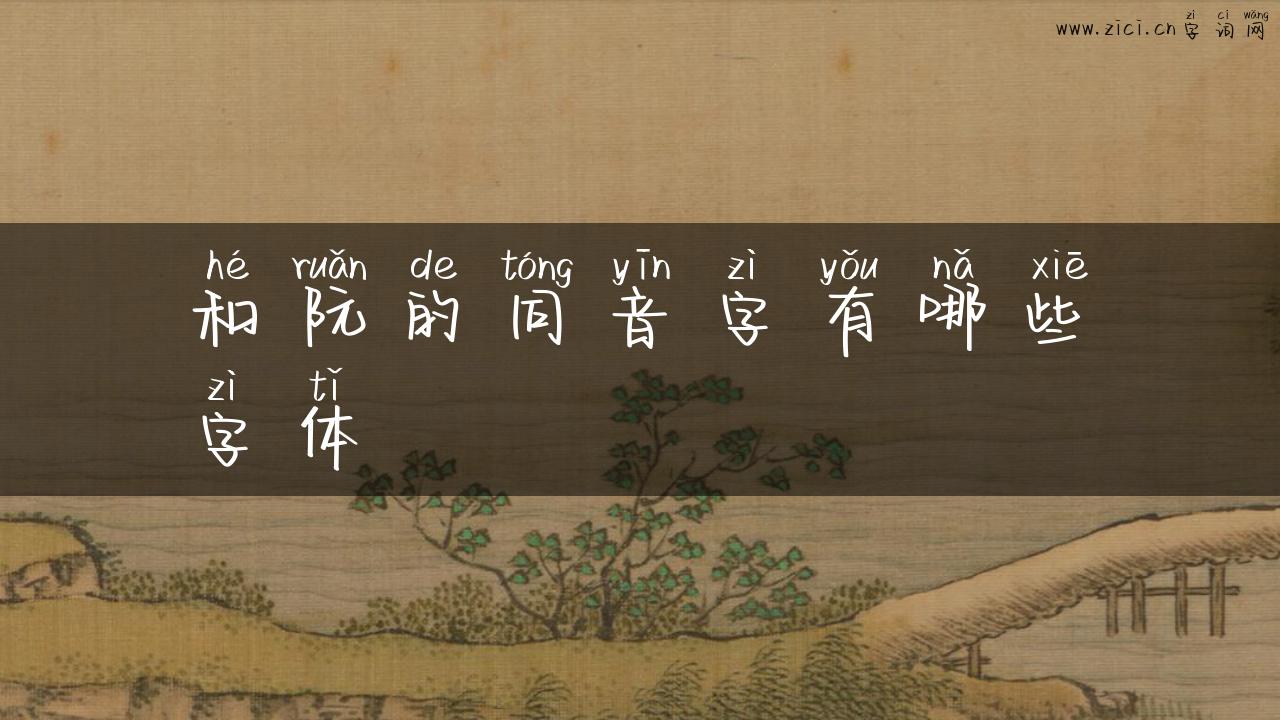 zì cí wǎng
www.zici.cn 字词网
hé ruǎn de tóng yīn zì yǒu nǎ xiē
和阮的同音字有哪些
zì tǐ
字体